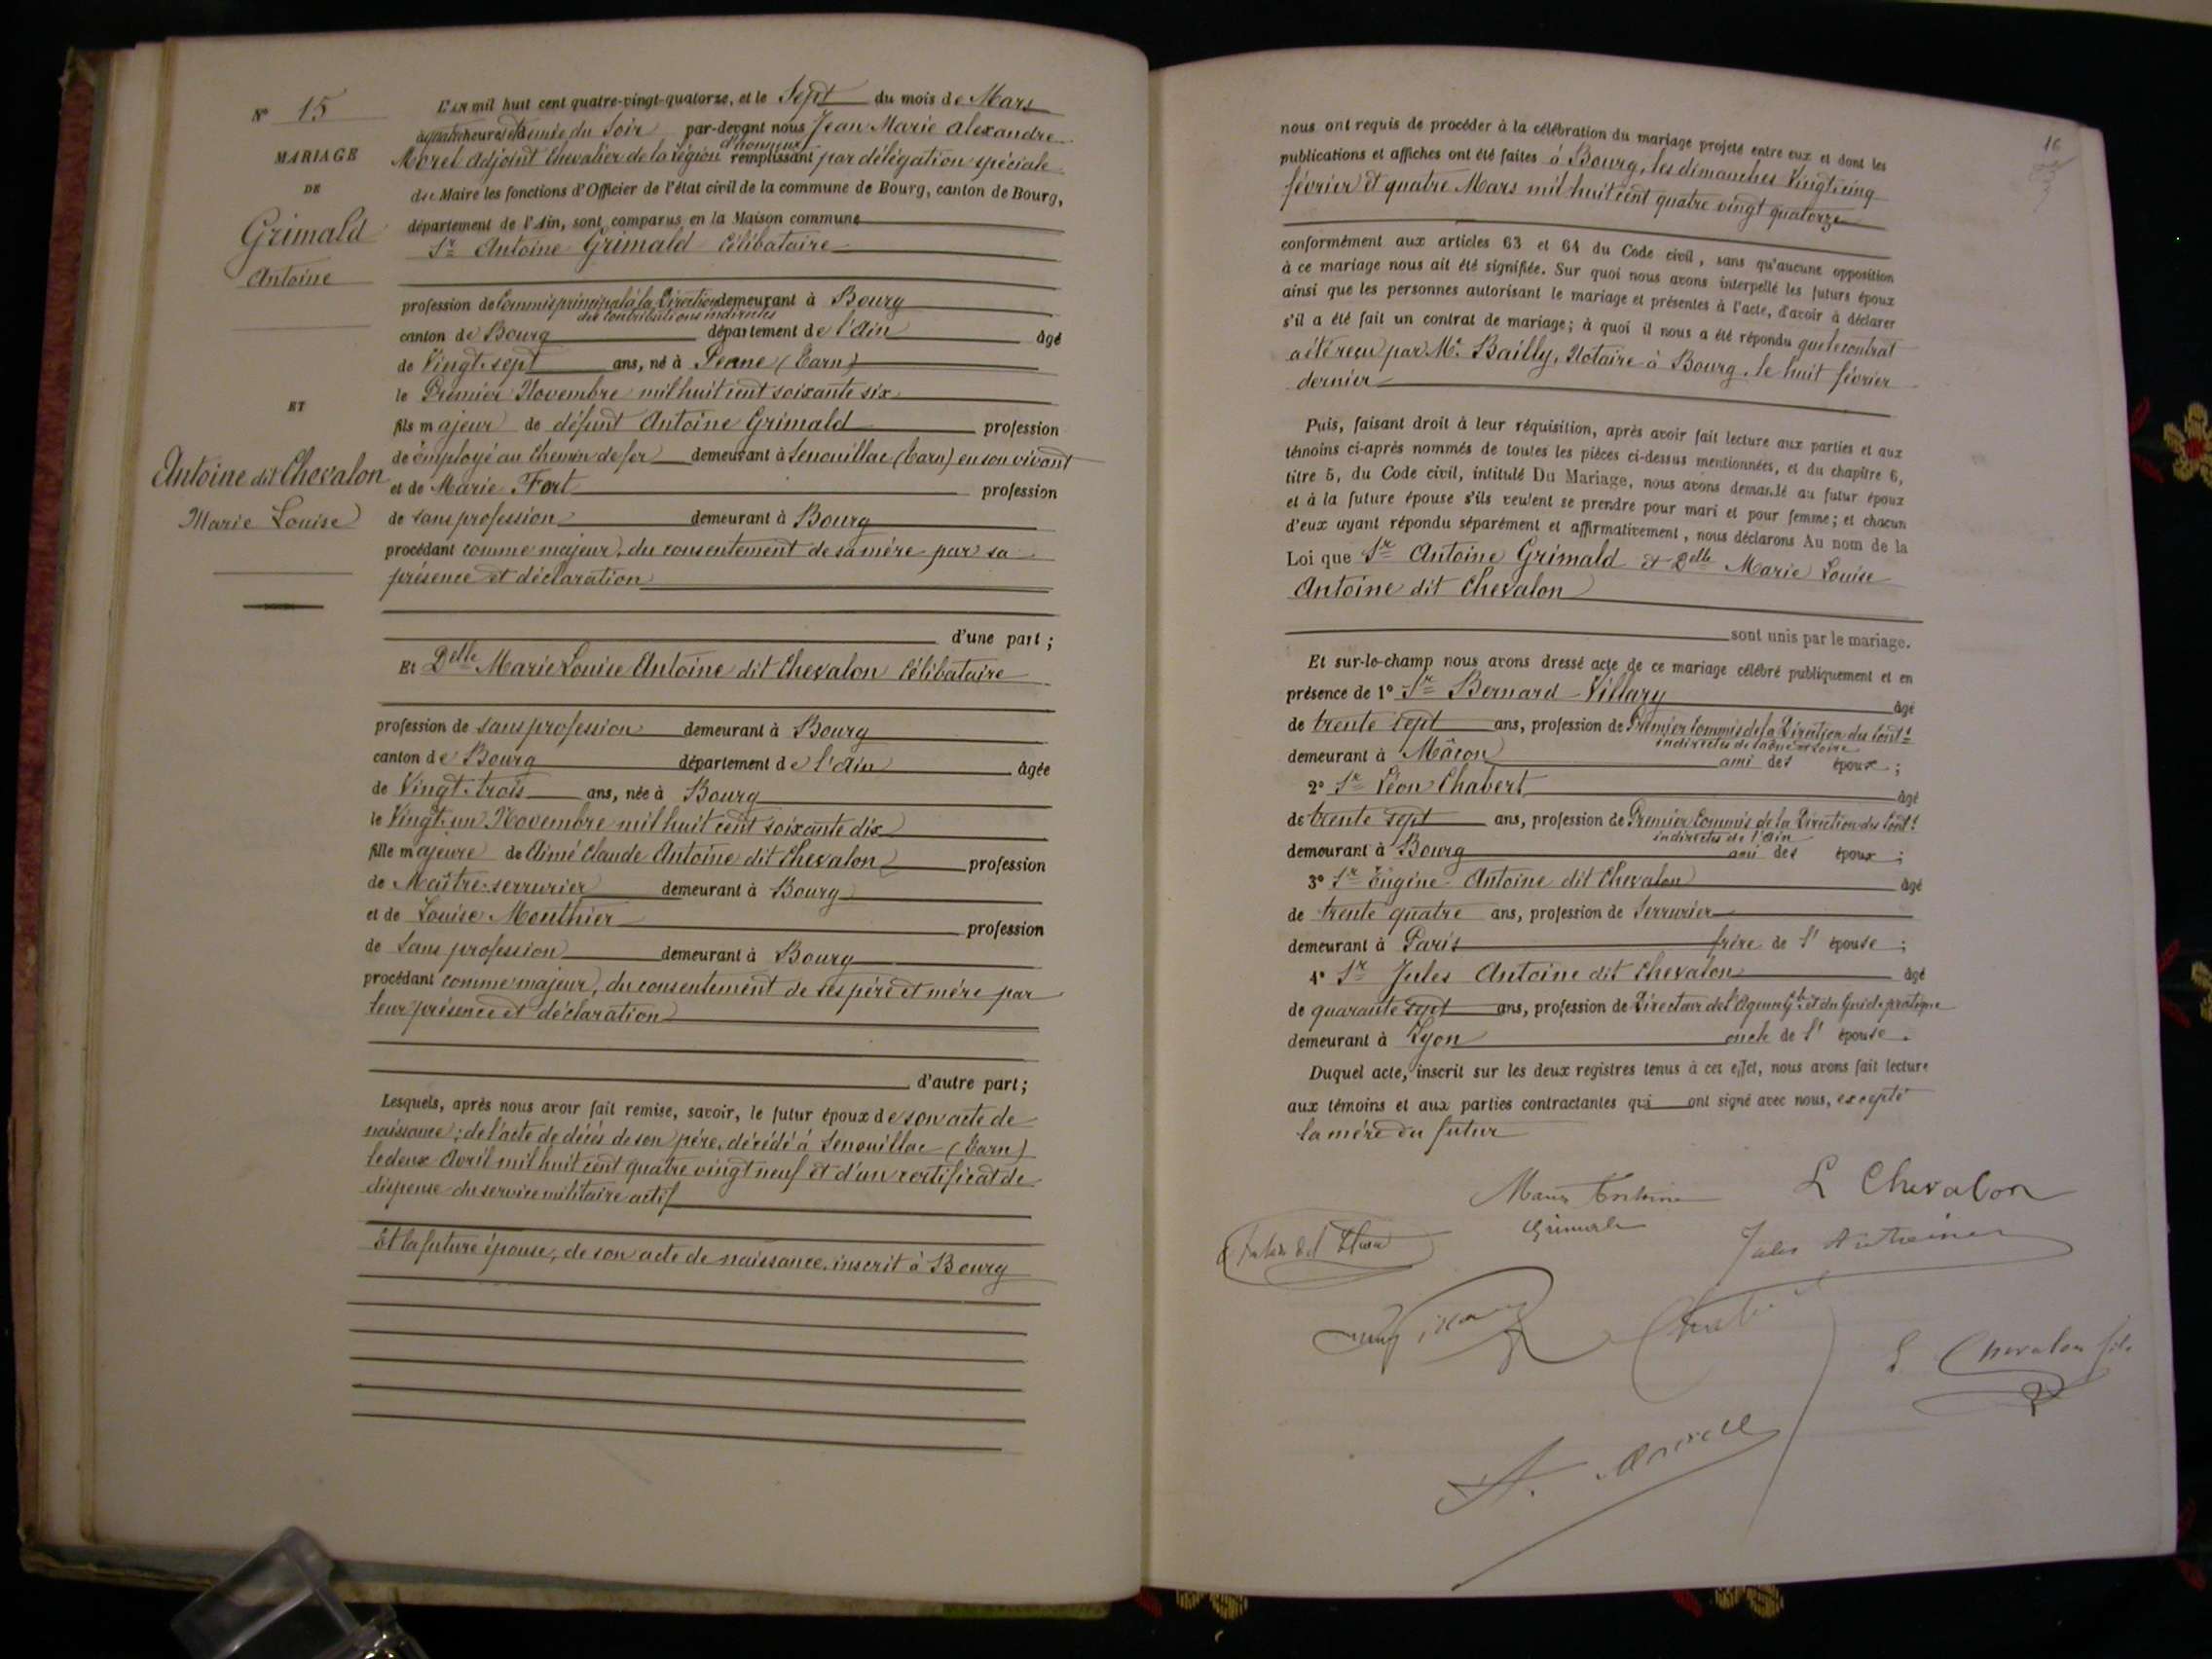 N° 15
MARIAGE
DE
Grimald
Antoine
ET
Antoine dit Chevalon
Marie Louise
L'AN mil huit cent quatre-vingt-quatorze, et le Sept du mois de Mars
à quatre heures et demie du Soir par-devant nous Jean Marie Alexandre
d'honneur
Morel Adjoint Chevalier de la région remplissant par délégation spéciale
du Maire les fonctions d'Officier de l'état civil de la commune de Bourg, canton de Bourg,
département de l'Ain, sont comparus en la Maison commune
Sr Antoine Grimald Célibataire
profession de Commis principal à la Direction demeurant à Bourg
des contributions indirectes
canton de Bourg département de l'Ain âgé
de Vingt-sept ans, né à Penne (Tarn)
le Premier Novembre mil huit cent soixante six
fils majeur de défunt Antoine Grimald profession
de employé au Chemin de fer demeurant à Senouillac (Tarn) en son vivant
et de Marie Fort profession
de sans profession demeurant à Bourg
procédant comme majeur, du consentement de sa mère par sa
présence et déclaration
d'une part ;
Et Delle Marie Louise Antoine dit Chevalon Célibataire
profession de sans profession demeurant à Bourg
canton de Bourg département de l'Ain âgée
de Vingt-trois ans, née à Bourg
le Vingt-un Novembre mil huit cent soixante dix
fille majeure de Aimé Claude Antoine dit Chevalon profession
de Maître-serrurier demeurant à Bourg
et de Louise Monthier profession
de Sans profession demeurant à Bourg
procédant comme majeur, du consentement de ses père et mère par
leur présence et déclaration
d'autre part ;
Lesquels, après nous avoir fait remise, savoir, le futur époux de son acte de
naissance ; de l'acte de décès de son père, décédé à Senouillac (Tarn)
le deux Avril mil huit cent quatre vingt neuf et d'un certificat de
dispense du service militaire actif
Et la future épouse, de son acte de naissance inscrit à Bourg
16
nous ont requis de procéder à la célébration du mariage projeté entre eux et dont les
publications et affiches ont été faites à Bourg, les dimanches Vingt-cinq
février et quatre Mars mil huit cent quatre vingt quatorze
conformément aux articles 63 et 64 du Code civil, sans qu'aucune opposition
à ce mariage nous ait été signifiée. Sur quoi nous avons interpellé les futurs époux
ainsi que les personnes autorisant le mariage et présentes à l'acte, d'avoir à déclarer
s'il a été fait un contrat de mariage ; à quoi il nous a été répondu que le contrat
a été reçu par Me Bailly, Notaire à Bourg, le huit février
dernier
Puis, faisant droit à leur réquisition, après avoir fait lecture aux parties et aux
témoins ci-après nommés de toutes les pièces ci-dessus mentionnées, et du chapitre 6,
titre 5, du Code civil, intitulé Du Mariage, nous avons demandé au futur époux
et à la future épouse s'ils veulent se prendre pour mari et pour femme ; et chacun
d'eux ayant répondu séparément et affirmativement, nous déclarons Au nom de la
Loi que Sr Antoine Grimald et Delle Marie Louise
Antoine dit Chevalon
sont unis par le mariage.
Et sur-le-champ nous avons dressé acte de ce mariage célébré publiquement et en
présence de 1° Sr Bernard Villary âgé
de trente sept ans, profession de Premier Commis de la Direction des Cont.
indirectes de
demeurant à Mâcon ami des époux ;
2° Sr Léon Chabert âgé
de trente sept ans, profession de Premier Commis de la Direction des Cont.
indirectes de l'Ain
demeurant à Bourg ami des époux ;
3° Sr Eugène Antoine dit Chevalon âgé
de trente quatre ans, profession de Serrurier
demeurant à Paris frère de l' épouse ;
4° Sr Jules Antoine dit Chevalon âgé
de quarante sept ans, profession de Directeur de l'Agence Gle et du Guide pratique
demeurant à Lyon oncle de l' épouse.
Duquel acte, inscrit sur les deux registres tenus à cet effet, nous avons fait lecture
aux témoins et aux parties contractantes qui ont signé avec nous, excepté
la mère du futur
L Chevalon
Grimald
Jules Antoine
Chevalon fils
A. Morel